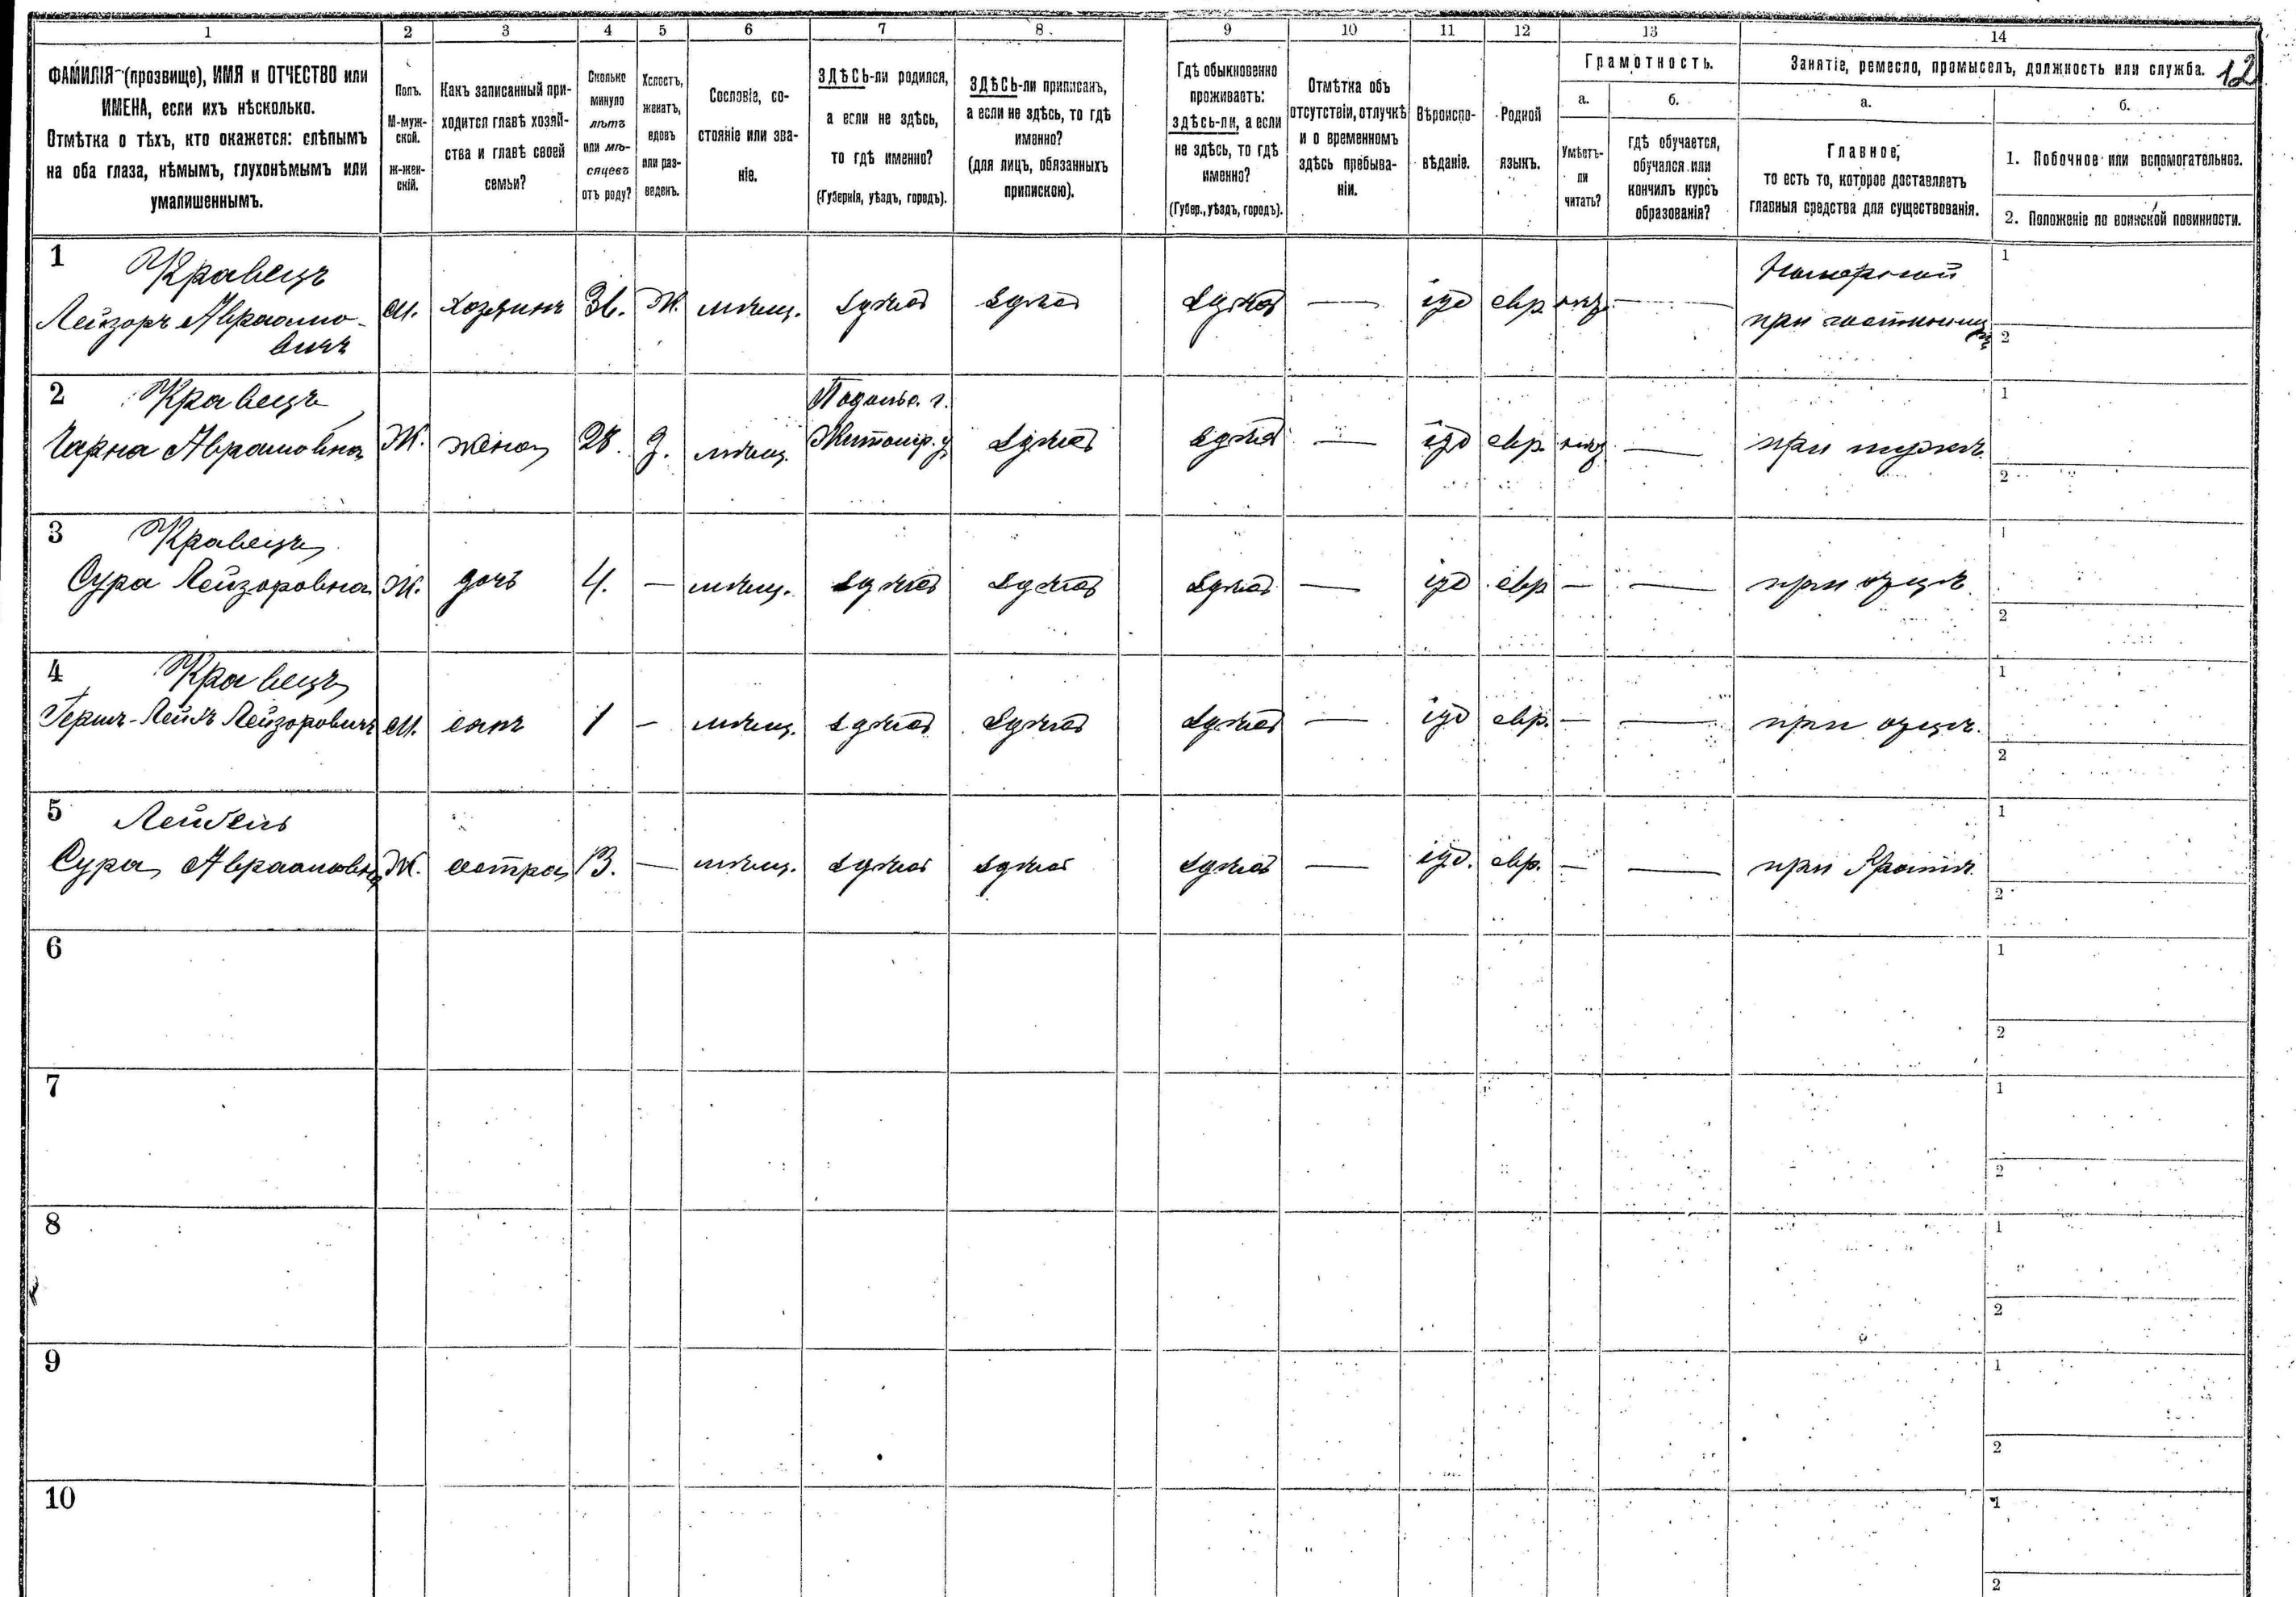 1 2 3 4 5 6 7 8 9 10 11 12 13 14
ФАМИЛІЯ (прозвище), ИМЯ и ОТЧЕСТВО или
ИМЕНА, если ихъ нѣсколько.
Отмѣтка о тѣхъ, кто окажется: слѣпымъ
на оба глаза, нѣмымъ, глухонѣмымъ или
умалишеннымъ.
Полъ.
М-муж-
ской.
Ж-жен-
скій.
Какъ записанный при-
ходится главѣ хозяй-
ства и главѣ своей
семьи?
Сколько
минуло
лѣтъ
или мѣ-
сяцевъ
отъ роду?
Холостъ,
женатъ,
вдовъ
или раз-
веденъ.
Сословіе, со-
стояніе или зва-
ніе.
ЗДѢСЬ-ли родился,
а если не здѣсь,
то гдѣ именно?
(Губернія, уѣздъ, городъ).
ЗДѢСЬ-ли приписанъ,
а если не здѣсь, то гдѣ
именно?
(для лицъ, обязанныхъ
припискою).
Гдѣ обыкновенно
проживаетъ:
здѣсь-ли, а если
не здѣсь, то гдѣ
именно?
(Губер., уѣздъ, городъ).
Отмѣтка объ
отсутствіи, отлучкѣ
и о временномъ
здѣсь пребыва-
ніи.
Вѣроиспо-
вѣданіе.
Родной
языкъ.
Грамотность.
а.
Умѣетъ-
ли
читать?
б.
гдѣ обучается,
обучался или
кончилъ курсъ
образованія?
Занятіе, ремесло, промыселъ, должность или служба. 12
а.
Главное,
то есть то, которое доставляетъ
главныя средства для существованія.
б.
1. Побочное или вспомогательное.
2. Положеніе по воинской повинности.
1 Кравецъ
Лейзоръ Авраамо-
вичъ
М. хозяинъ Ж. мѣщ. здѣсь здѣсь здѣсь — іуд евр —
при гостинницѣ
1
2
2 Кравецъ
Чарна Авраамовна
Ж. жена 28. З. мѣщ.
Подольс. г.
Житомір. у
здѣсь здѣсь — іуд евр. — при мужѣ
1
2
3 Кравецъ
Сура Лейзоровна Ж. дочь 4. — мѣщ. здѣсь здѣсь здѣсь — іуд евр — — при отцѣ
1
2
4 Кравецъ
Гершъ-Лейбъ Лейзоровичъ М. сынъ 1 — мѣщ. здѣсь здѣсь здѣсь — іуд евр. — — при отцѣ.
1
2
5
Сура Авраамовна Ж. сестра 13. — мѣщ. здѣсь здѣсь здѣсь — іуд. евр. — — при братѣ
1
2
6
1
2
7
1
2
8
1
2
9
1
2
10
1
2